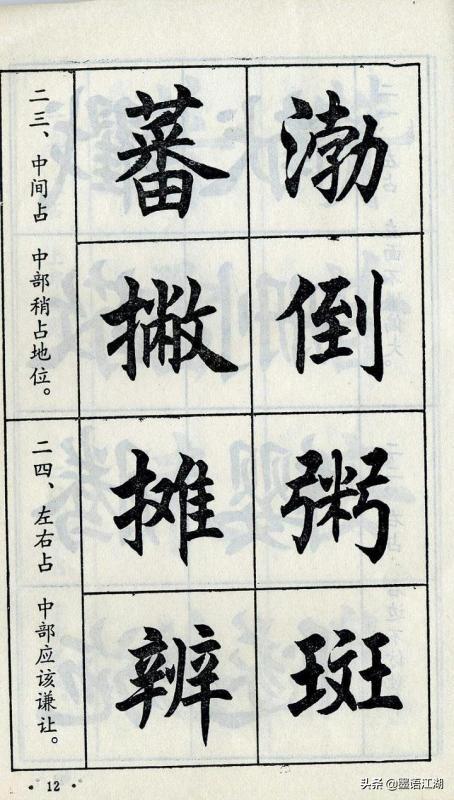 二三、中间占 中部稍占地位。
蕃 渤
撇 倒
二四、左右占 中部应该谦让。
摊 粥
辨 斑
·12·
头条@墨语江湖